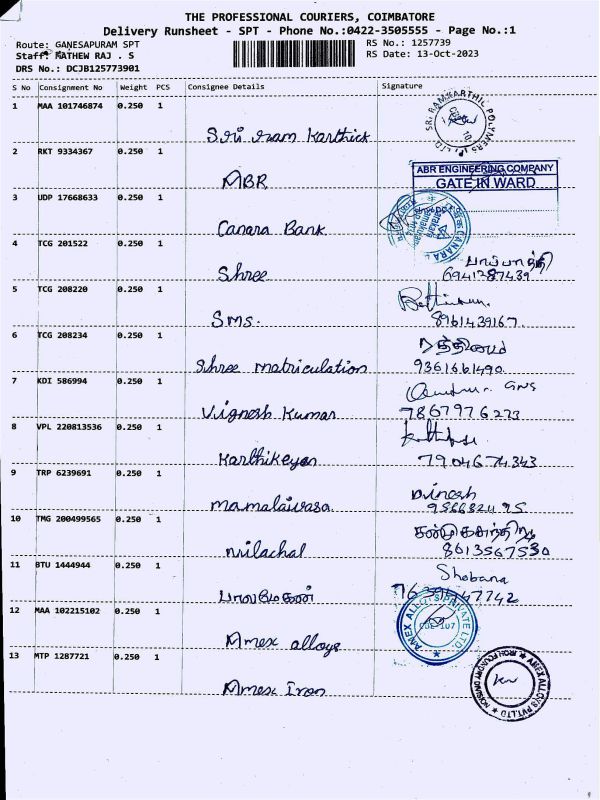 THE PROFESSIONAL COURIERS, COIMBATORE
Delivery Runsheet - SPT - Phone No.:0422-3505555 - Page No.:1
Route: GANESAPURAM SPT
RS No.: 1257739
Staff: MATHEW RAJ . S
RS Date: 13-Oct-2023
DRS No.: DCJB125773901
S No Consignment No Weight PCS Consignee Details Signature
1 MAA 101746874 0.250 1
Sri ram Karthick
SRI RAMKARTHIL POLYMERS (P) LTD
2 RKT 9334367 0.250 1
ABR
ABR ENGINEERING COMPANY
GATE IN WARD
3 UDP 17668633 0.250 1
Canara Bank
4 TCG 201522 0.250 1
Shree
6941287439
5 TCG 208220 0.250 1
SMS.
8961439167
6 TCG 208234 0.250 1
Shree matriculation
9361661490
7 KDI 586994 0.250 1
Vignesh Kumar
7867976273
8 VPL 220813536 0.250 1
Karthikeyan
7904674343
9 TRP 6239691 0.250 1
mamalaivasa
Dinesh
10 TMG 200499565 0.250 1
nilachal
8613567530
11 BTU 1444944 0.250 1
பாலமுருகன்
Shobana
12 MAA 102215102 0.250 1
Amex alloys
AMEX ALLOYS PRIVATE LTD.
13 MTP 1287721 0.250 1
Amex Iron
AMEX ALLOYS PVT LTD
IRON FOUNDRY DIVISION